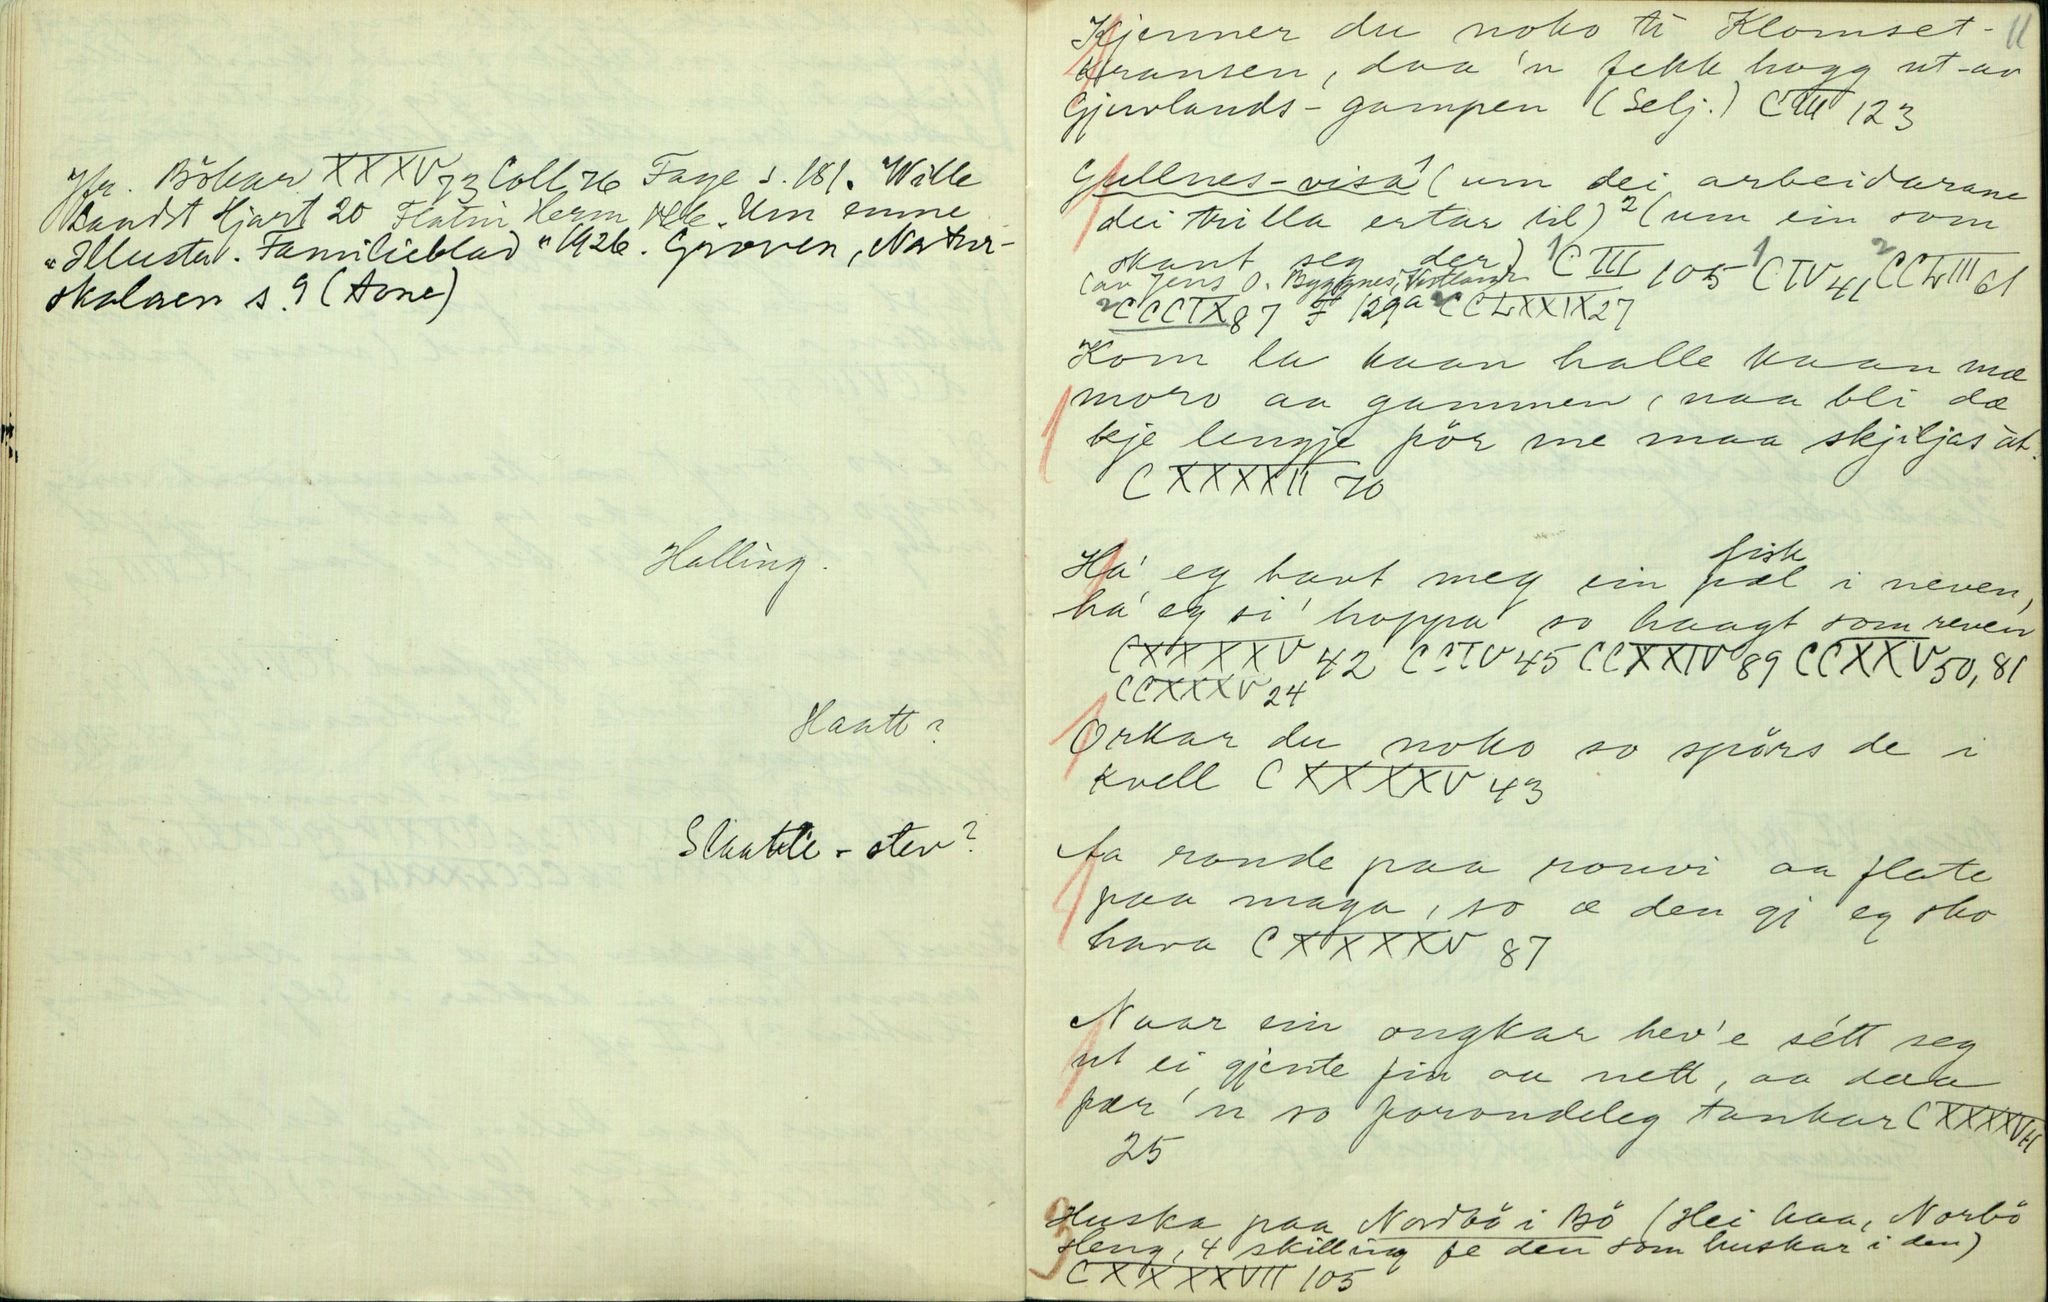 Jfr. Bökar XXXV 73 Coll 76 Faye s. 181. Wille
Landst Hjart 20 Flatin Herm Um emne
"Illustr. Familieblad" 1926. Groven, Natur-
skalaen s. 9 (Aone)
Halling.
Haatt?
Slaatte-stev?
11
Kjenner du noko ti Klomset-
transen, daa 'n fekk hogg ut-av
Gjuvlands-gampen (Selj.) CIII 123
Gullnes-visa 1 (um dei arbeidarane
dei trilla ertar til) 2 (um ein som
skaut seg der) 1 CIII 105 1 CIV 41 2 CCLIII 61
(av Jens O. Bygg
2 CCCIX 87 F 129a 2 CCLXXIX 27
Kom la kaan halle kaan mæ
moro aa gammen, naa bli dæ
kje lengje för me maa skjiljas åt.
CXXXXII 70
Ha' eg havt meg ein pæl fisk i neven,
ha' eg si' hoppa so haagt som reven
CXXXXV 42 CCIV 45 CCXXIV 89 CCXXV 50, 81
CCXXXV 24
Orkar du noko so spörs de i
kvell CXXXXV 43
Aa ronde paa rouvi aa flate
paa maga, so æ den gj eg sko
hava CXXXXV 87
Naar ein ongkar hev'e sétt seg
ut ei gjente fin aa nett, aa daa
fær 'n so forondeleg tankar CXXXXVII
25
Huska paa Nordbö i Bö (Hei haa, Norbö
Heng, 4 skilling fe den som huskar i den)
CXXXXVII 105